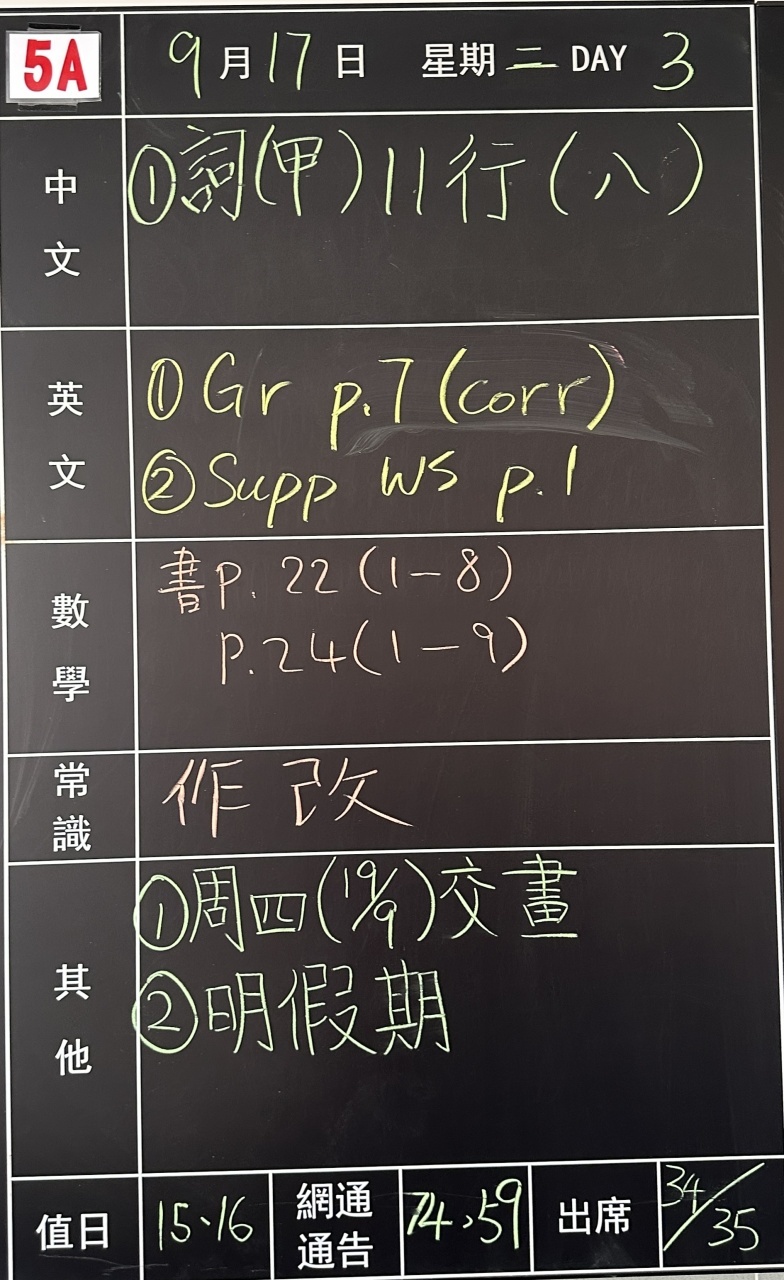 5A
9月17日 星期二 DAY 3
中文
①詞(甲)11行(八)
英文
①Gr p.7 (corr)
②Supp WS p.1
數學
書p.22(1-8)
p.24(1-9)
常識
作改
其他
①周四(19/9)交畫
②明假期
值日 15、16 網通通告 74、59 出席 34/35